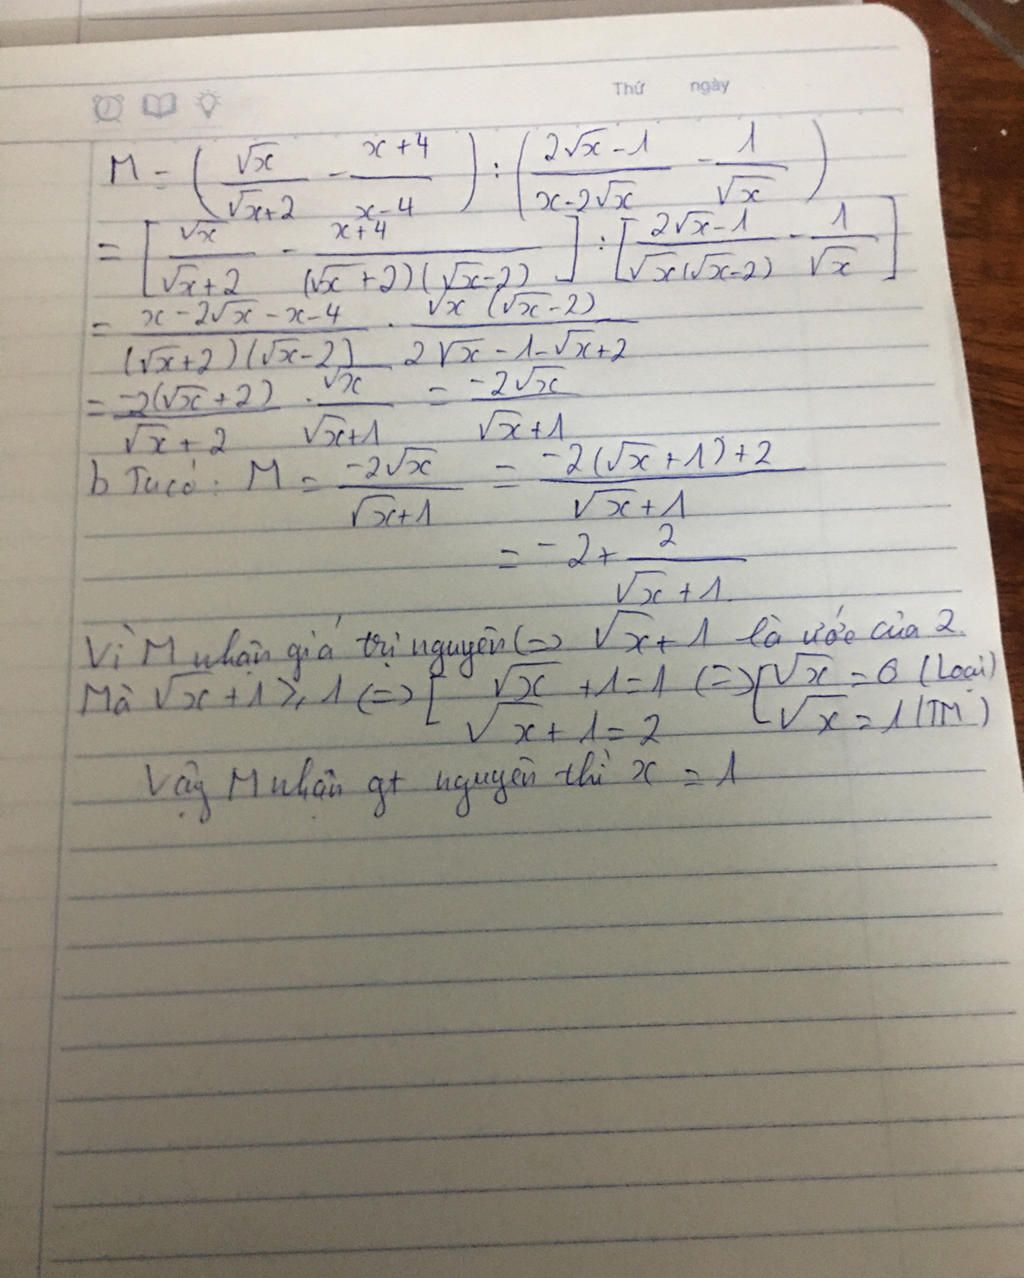 Thứ ngày
M = (√x/(√x+2) - (x+4)/(x-4)) : ((2√x-1)/(x-2√x) - 1/√x)
= [√x/(√x+2) - (x+4)/((√x+2)(√x-2))] : [(2√x-1)/(√x(√x-2)) - 1/√x]
= (x-2√x-x-4)/((√x+2)(√x-2)) . (√x(√x-2))/(2√x-1-√x+2)
= (-2(√x+2))/(√x+2) . √x/(√x+1) = (-2√x)/(√x+1)
b Ta có: M = (-2√x)/(√x+1) = (-2(√x+1)+2)/(√x+1)
= -2 + 2/(√x+1)
Vì M nhận giá trị nguyên (=) √x+1 là ước của 2.
Mà √x+1 ≥ 1 (=) [√x+1=1 (=) [√x=0 (Loại)
√x+1=2 √x=1 (TM)
Vậy M nhận gt nguyên thì x = 1